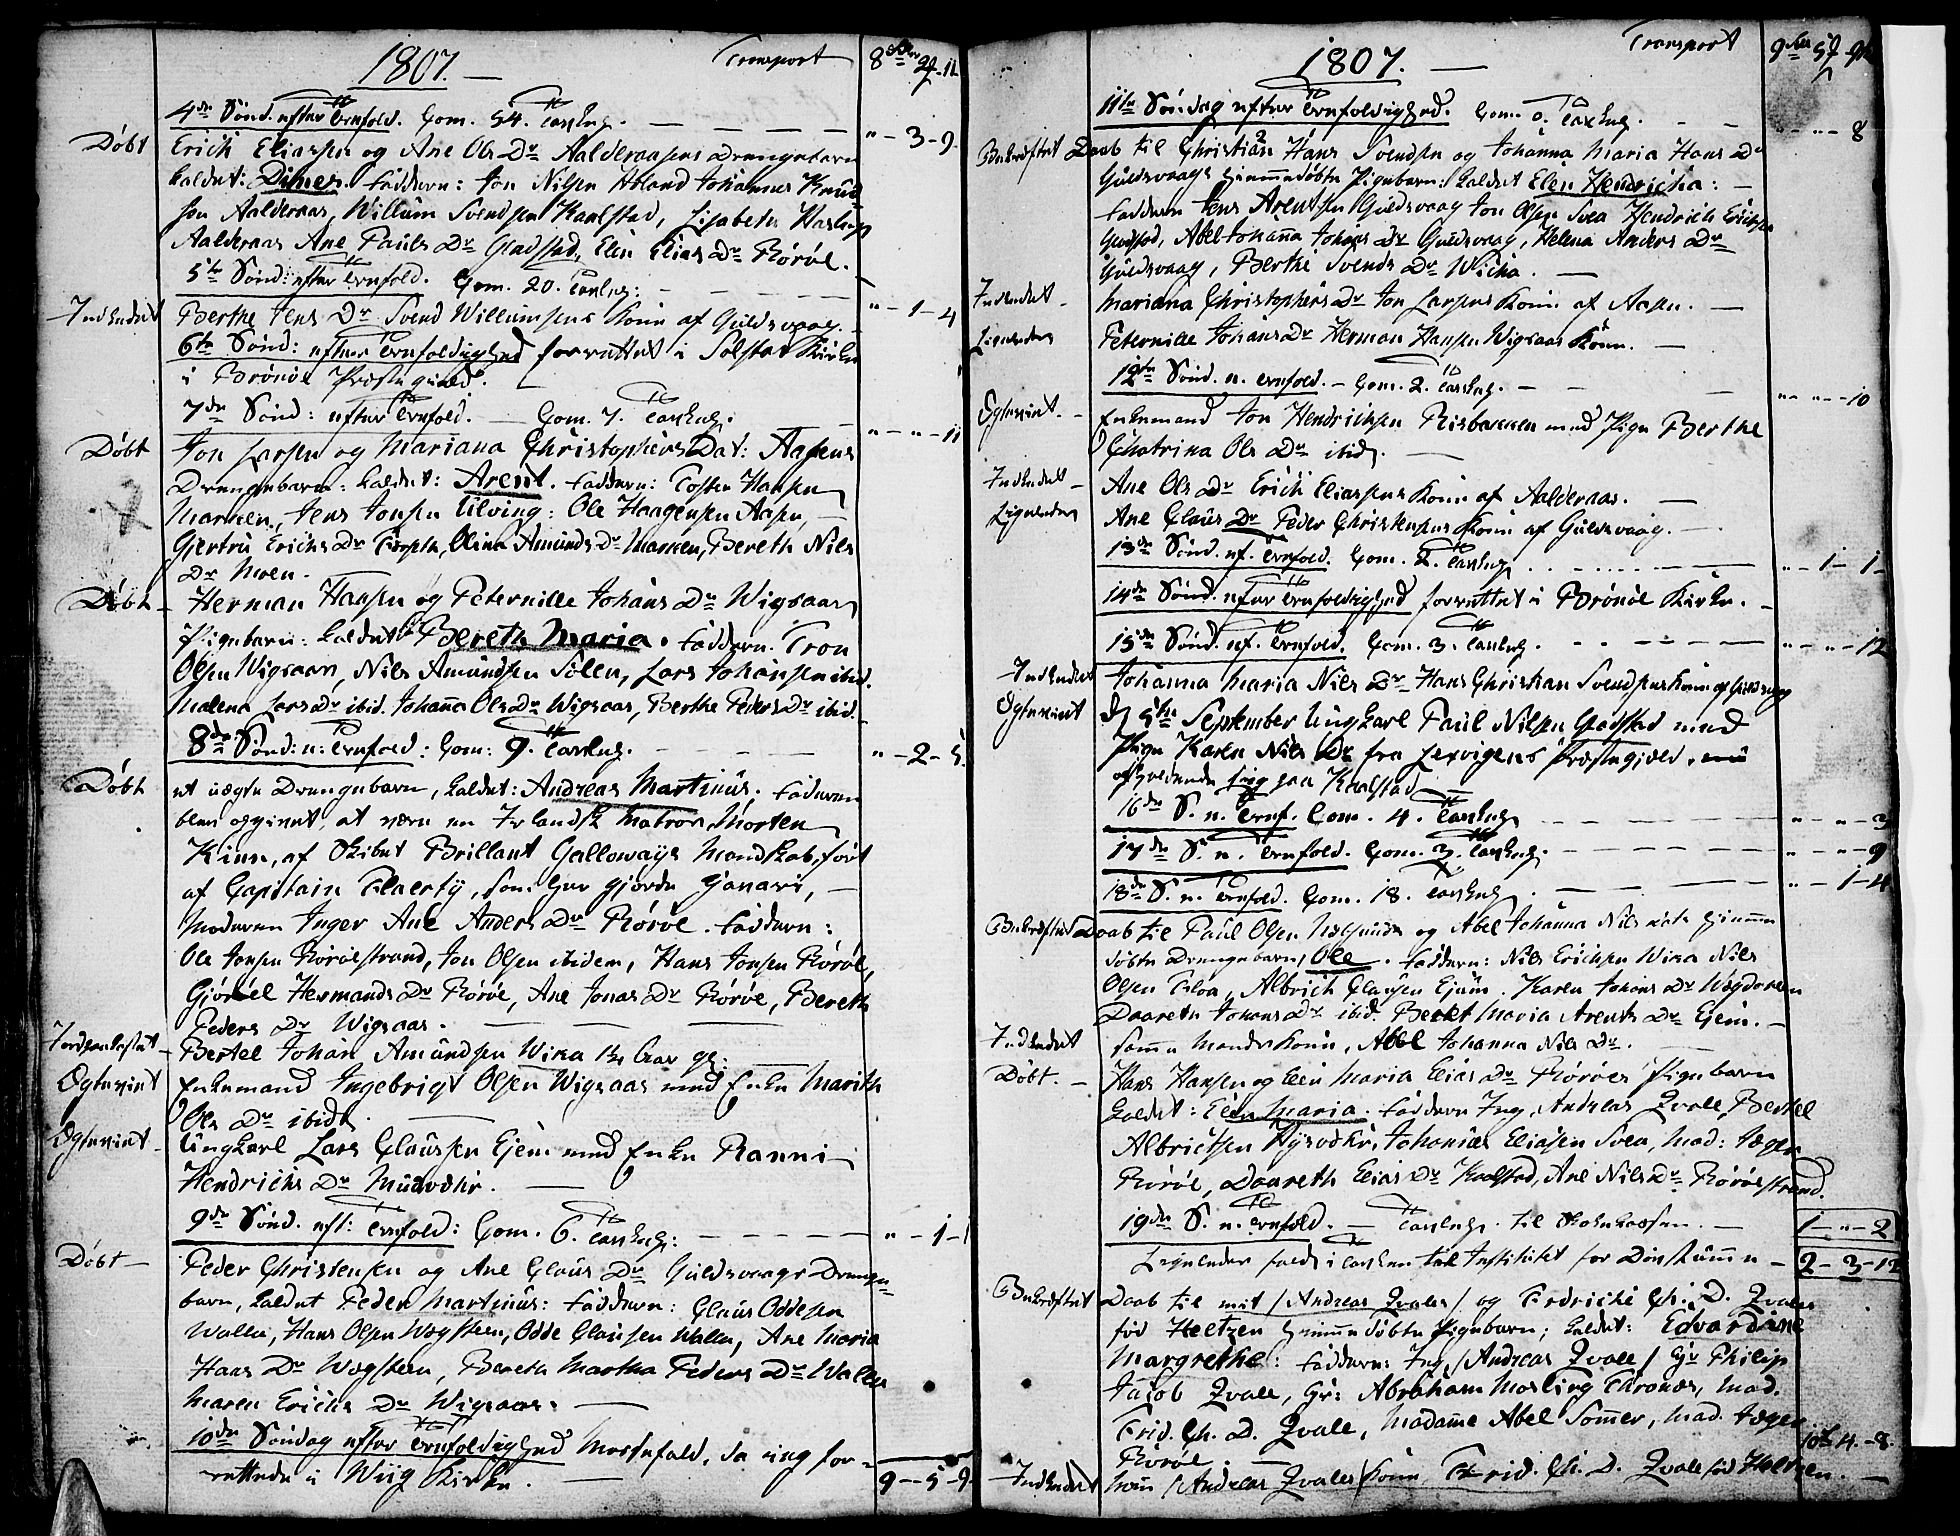 1807. — Transport 8
4de Sönd. efter Trefold. Com. 54. Tavlep. — — — " - 3 - 9
Döbt Erich Eliassen og Ane Ols Dr Aalderaasens Drengebarn
kaldet: Dines. Faddere: Jon Nilsen Johannes Knud
sen Aalderaas, Willum Svendsen Kaalstad, Lisabeth
Aalderaas Ane Pauls Dr Gladstad, Elen Elias Dr Röröe.
5te Sönd: efter Trefold. Com. 20. " - 1 - 4
Indledet Berthe Jens Dr Svend Willumsens Kone af Guldsvaag.
6te Sönd: efter Trefoldighed forrettet i Solstad Kirke
i Brönöe Præstegield.
7de Sönd: efter Trefold. — Com. 7. " - " - 11
Döbt Jon Larsen og Mariana Christophers Dat: Aasens
Drengebarn: kaldet: Arent. Faddere: Tosten Hansen
Marken, Jens Jonsen Tilving: Ole Haagensen Aasen,
Gjertru Erichs Dr Olina Amunds Dr Marken, Bereth Nils
Dr Moen.
Döbt - Herman Hansen og Peternille Johans Dr Wigsaas
Pigebarn: kaldet Bereth Maria. Faddere. Tron
Olsen Wigsaas, Nils Amundsen Sölen, Lars Johansen ibid.
Malena Lars Dr ibid. Johanna Ols Dr Wigsaas, Berthe Peders Dr ibid.
8de Sönd: n: Trefold: Com: 9. " - 2 - 5
Döbt et uægte Drengebarn, kaldet: Andreas Martinus. Faderen
blev opgivet, at være en Irlandsk Matros Morten
af Skibet Brillant Galloways Mandskab, fört
af Capitain Flaerty, som her gjorde
Moderen Inger Ane Anders Dr Röröe. Faddere:
Ole Jensen Röröestrand, Jon Olsen ibidem, Hans Jonsen Röröe,
Hermands Dr Röröe, Ane Jonas Dr Röröe, Bereth
Peders Dr Wigsaas.
Jordpaakastet - Bertel Johan Amundsen Wika
Egteviet Enkemand Ingebrigt Olsen Wigsaas med Enke Marith
Ols Dr ibid.
Egteviet - Ungkarl Lars Clausen Ejem med Enke Ranni
Hendrichs Dr
9de Sönd. eft: Trefold: Com. 6. " - 1 - 1
Döbt - Peder Christensen og Ane Claus Dr Guldsvaags Drenge
barn, kaldet Peder Martinus: Faddere: Claus Oddesen
Walla, Hans Olsen Wegsteen, Odde Clausen Walla, Ane Maria
Hans Dr Wegsteen, Bereth Martha Peders Dr Walla
Maren Erichs Dr Wigsaas.
10de Söndag efter Trefoldighed Messefald, da ieg for-
rettede i Wiig Kirke. 9 - 5 - 9
1807. — Transport
11te Söndag efter Trefoldighed. Com. 0. " - " - 8
Bekræftet Daab til Christian Hans Svendsen og Johanna Maria Hans Dr
Guldsvaags hiemmedöbte Pigebarn: kaldet Elen Hendricha:
Faddere Jens Arentsen Guldsvaag Jon Olsen Svea Hendrich Erichsen
Gladstad, Abel Johanna Johans Dr Guldsvaag, Helena Anders Dr
Guldsvaag, Berthe Svends Dr Wicka.
Indledet - Mariana Christophers Dr Jon Larsens Kone af Aasen.
Ligeledes Peternille Johans Dr Herman Hansen Wigsaas Kone.
12te Sönd. n. Trefold. - Com. 2. " - " - 10
Egteviet. - Enkemand Jon Hendrichsen Risbakken med Pige Berthe
Chatrina Ols Dr ibid.
Indledet - Ane Ols Dr Erich Eliassens Kone af Aalderaas.
Ligeledes Ane Claus Dr Peder Christensens Kone af Guldsvaag.
13de Sönd. ef. Trefold. Com. 2. " - 1 - 1
14de Sönd. efter Trefoldighed forrettet i Brönöe Kirke.
15de Sönd. ef. Trefold. Com. 3. " - " - 12
Indledet Johanna Maria Nils Dr Hans Christian Svendsens Kone af Guldsvaag
Egteviet d 5te September Ungkarl Paul Nilsen Gladstad med
Pige Karen Nils Dr fra Lexvigens Præstegjeld, nu
opholdende sig paa Kaalstad
16de S. n. Tref. Com. 4.
17de S. n. Trefold. Com. 3. " - " - 9
18de S. n. Trefold. Com. 18. " - 1 - 4
Bekræftet Daab til Paul Olsen og Abel Johanna Nils Datr hiemme
döbte Drengebarn, Ole. Faddere: Nils Erichsen Wika Nils
Olsen Floa, Albrich Clausen Ejem. Karen Johans Dr
Daareth Johans Dr ibid. Beret Maria Arents Dr Ejem.
Indledet samme Mands Kone, Abel Johanna Nils Dr.
Döbt. - Hans Hansen og Elen Maria Elias Dr Röröes Pigebarn
kaldet: Elen Maria. Faddere Jeg, Andreas Zvale, Bertel
Albrictsen Johannes Eliasen Svea, Mad: Jæger
Röröe, Daareth Elias Dr Kaalstad, Ane Nils Dr Röröestrand.
19de S. n. Trefold. — til Skolekassen. 1 - " - 2
Ligeledes faldt i til Institutet for Döv Stumme - 2 - 3 - 12
Bekræftet Daab til mit / Andreas Zvales / og Fredriche Ch. D. Zvales
föd Heltzen hiemmedöbte Pigebarn; kaldet: Edvardine
Margrethe: Faddere: Jeg / Andreas Zvale / Hr Philip
Jacob Zvale, Hr: Abraham Mosling Mad.
Frid. Ch. D. Zvale, Madame Abel Sommer, Mad. Jæger
Röröe.
Indledet Min / Andreas Zvales / Kone, Frid. Ch. D. Zvale föd Heltzen.